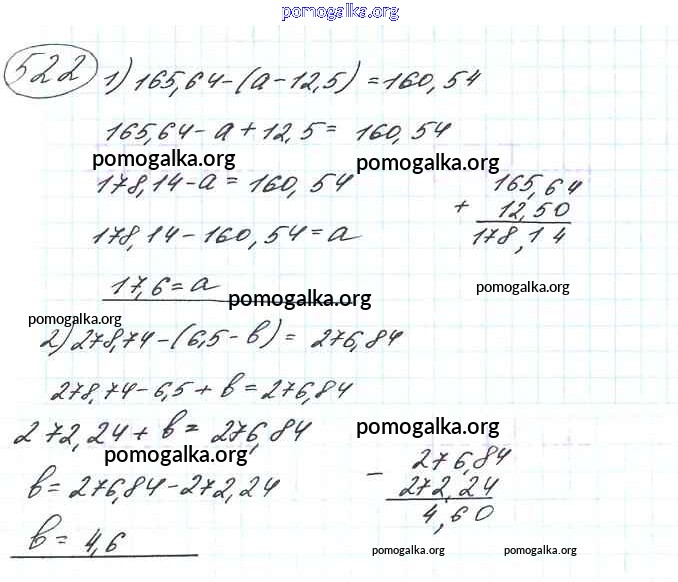 pomogalka.org
522
1) 165,64-(a-12,5)=160,54
165,64-a+12,5=160,54
pomogalka.org
pomogalka.org
178,14-a=160,54
165,64
+ 12,50
178,14
178,14-160,54=a
17,6=a
pomogalka.org
pomogalka.org
pomogalka.org
2) 278,74-(6,5-b)=276,84
278,74-6,5+b=276,84
272,24+b=276,84
pomogalka.org
pomogalka.org
b=276,84-272,24
- 276,84
272,24
4,60
b=4,6
pomogalka.org
pomogalka.org